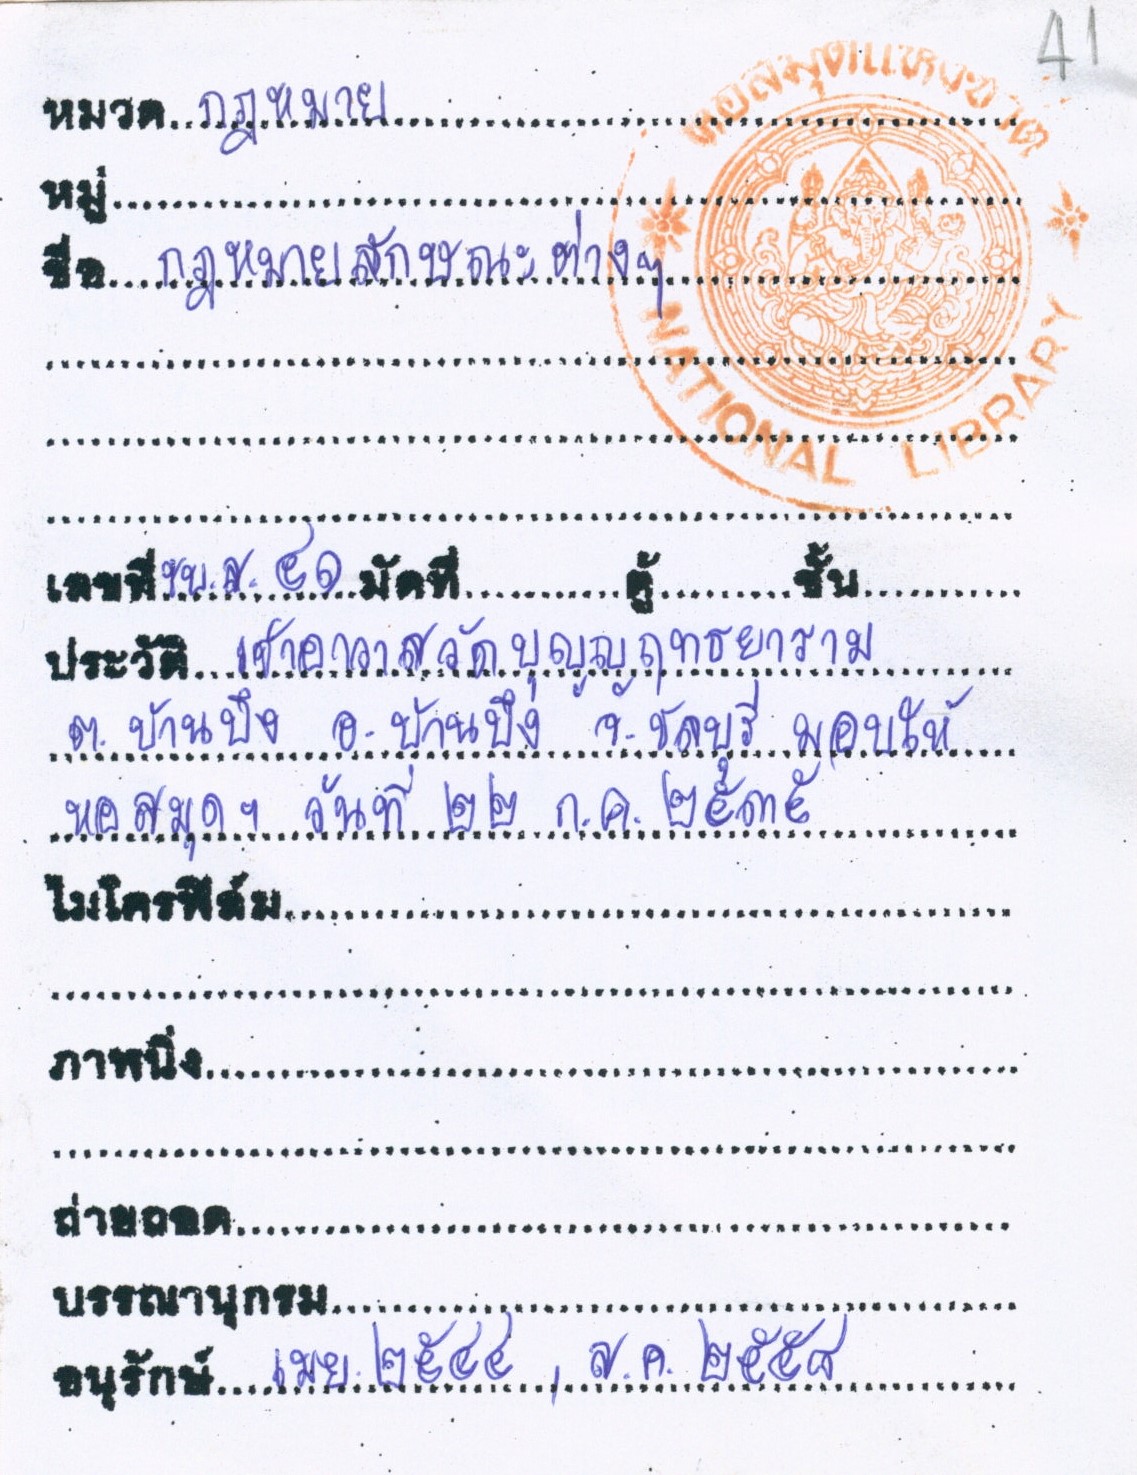 41
หอสมุดแห่งชาติ
NATIONAL LIBRARY
หมวด กฎหมาย
หมู่
ชื่อ กฎหมายลักษณะต่างๆ
เลขที่ ชบ.ส. ๔๑ มัดที่ ตู้ ชั้น
ประวัติ เจ้าอาวาสวัดบุญญฤทธยาราม
ต. บ้านบึง อ. บ้านบึง จ. ชลบุรี มอบให้
หอสมุดฯ วันที่ ๒๒ ก.ค. ๒๕๓๕
ไมโครฟิล์ม
ภาพนิ่ง
ถ่ายถอด
บรรณานุกรม
อนุรักษ์ เมย. ๒๕๔๔ , ส.ค. ๒๕๕๘